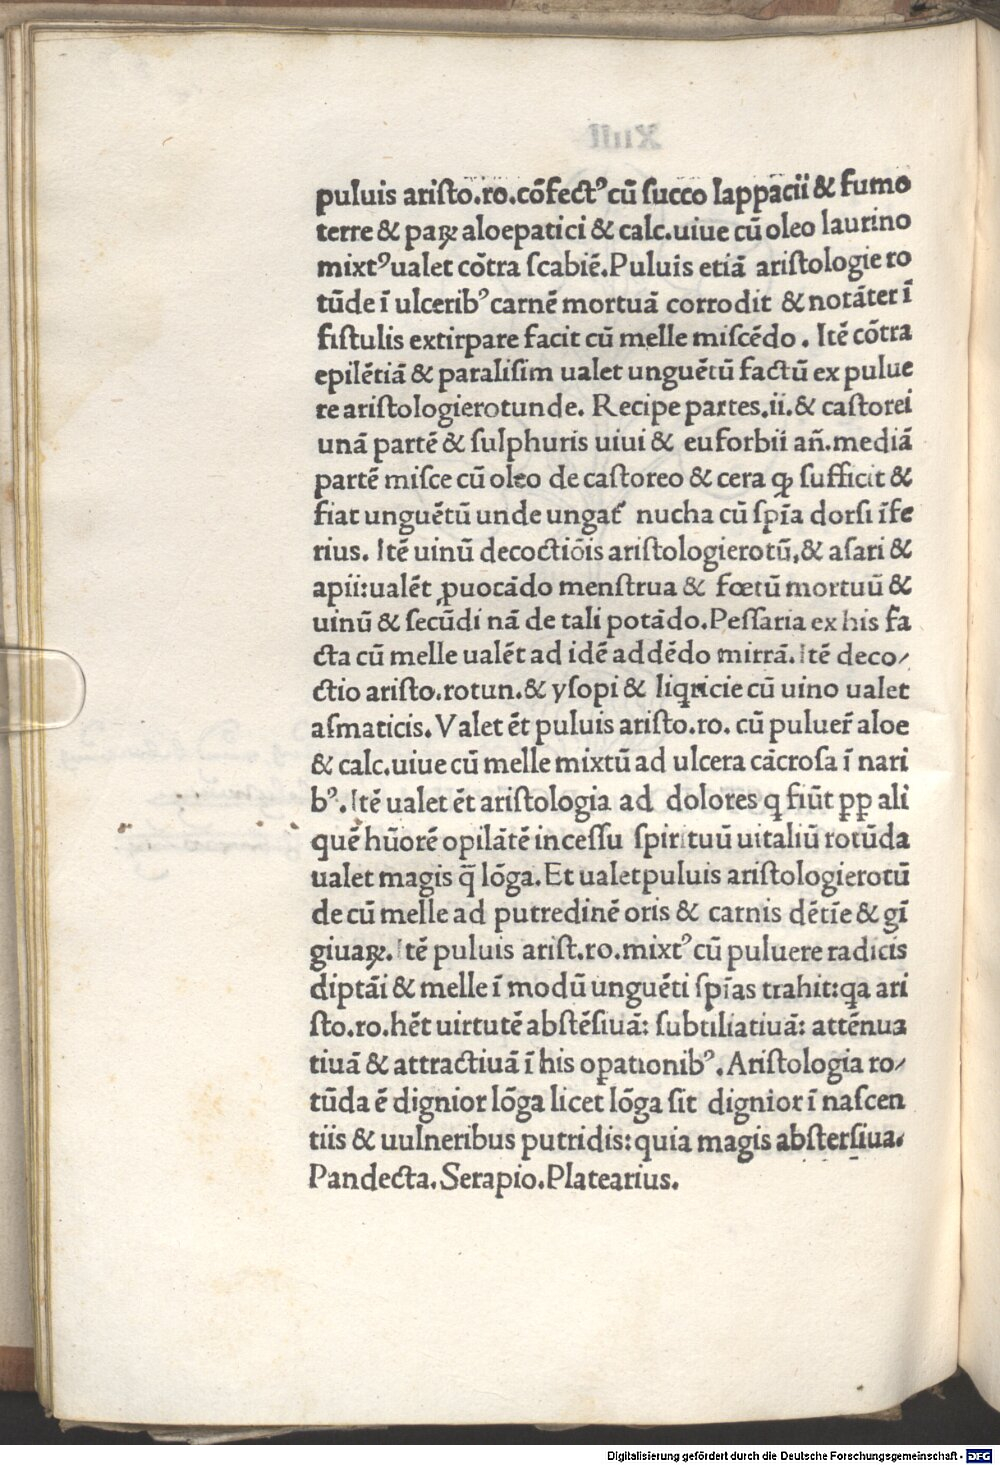 puluis aristo.ro.cõfectꝰ cũ succo lappacii & fumo
terre & paꝝ aloepatici & calc.uiue cũ oleo laurino
mixtꝰ ualet cõtra scabiẽ.Puluis etiã aristologie ro
tũde ĩ ulceribꝰ carnẽ mortuã corrodit & notãter ĩ
fistulis extirpare facit cũ melle miscẽdo. Itẽ cõtra
epilẽtiã & paralisim ualet unguẽtũ factũ ex pulue
re aristologierotunde. Recipe partes.ii.& castorei
unã partẽ & sulphuris uiui & euforbii añ.mediã
partẽ misce cũ oleo de castoreo & cera qꝫ sufficit &
fiat unguẽtũ unde ungat᷑ nucha cũ spĩa dorsi ĩfe
rius. Itẽ uinũ decoctiõis aristologierotũ,& asari &
apii:ualẽt ꝓuocãdo menstrua & fœtũ mortuũ &
uinũ & secũdi nã de tali potãdo.Pessaria ex his fa
cta cũ melle ualẽt ad idẽ addẽdo mirrã.Itẽ deco/
ctio aristo.rotun.& ysopi & liqricie cũ uino ualet
asmaticis. Valet ẽt puluis aristo.ro. cũ puluer̃ aloe
& calc.uiue cũ melle mixtũ ad ulcera cãcrosa ĩ nari
bꝰ. Itẽ ualet ẽt aristologia ad dolores q fiũt ꝓꝑ ali
quẽ hũorẽ opilãtẽ incessu spirituũ uitaliũ rotũda
ualet magis q̃ lõga. Et ualet puluis aristologierotũ
de cũ melle ad putredinẽ oris & carnis dẽtĩe & gĩ
giuaꝝ. Itẽ puluis arist.ro.mixtꝰ cũ puluere radicis
diptãi & melle ĩ modũ unguẽti spĩas trahit:qa ari
sto.ro.hẽt uirtutẽ abstẽsiuã: subtiliatiuã: attẽnua
tiuã & attractiuã ĩ his oꝑationibꝰ. Aristologia ro/
tũda ẽ dignior lõga licet lõga sit dignior ĩ nascen
tiis & uulneribus putridis:quia magis abstersiua.
Pandecta. Serapio. Platearius.
Digitalisierung gefördert durch die Deutsche Forschungsgemeinschaft - DFG